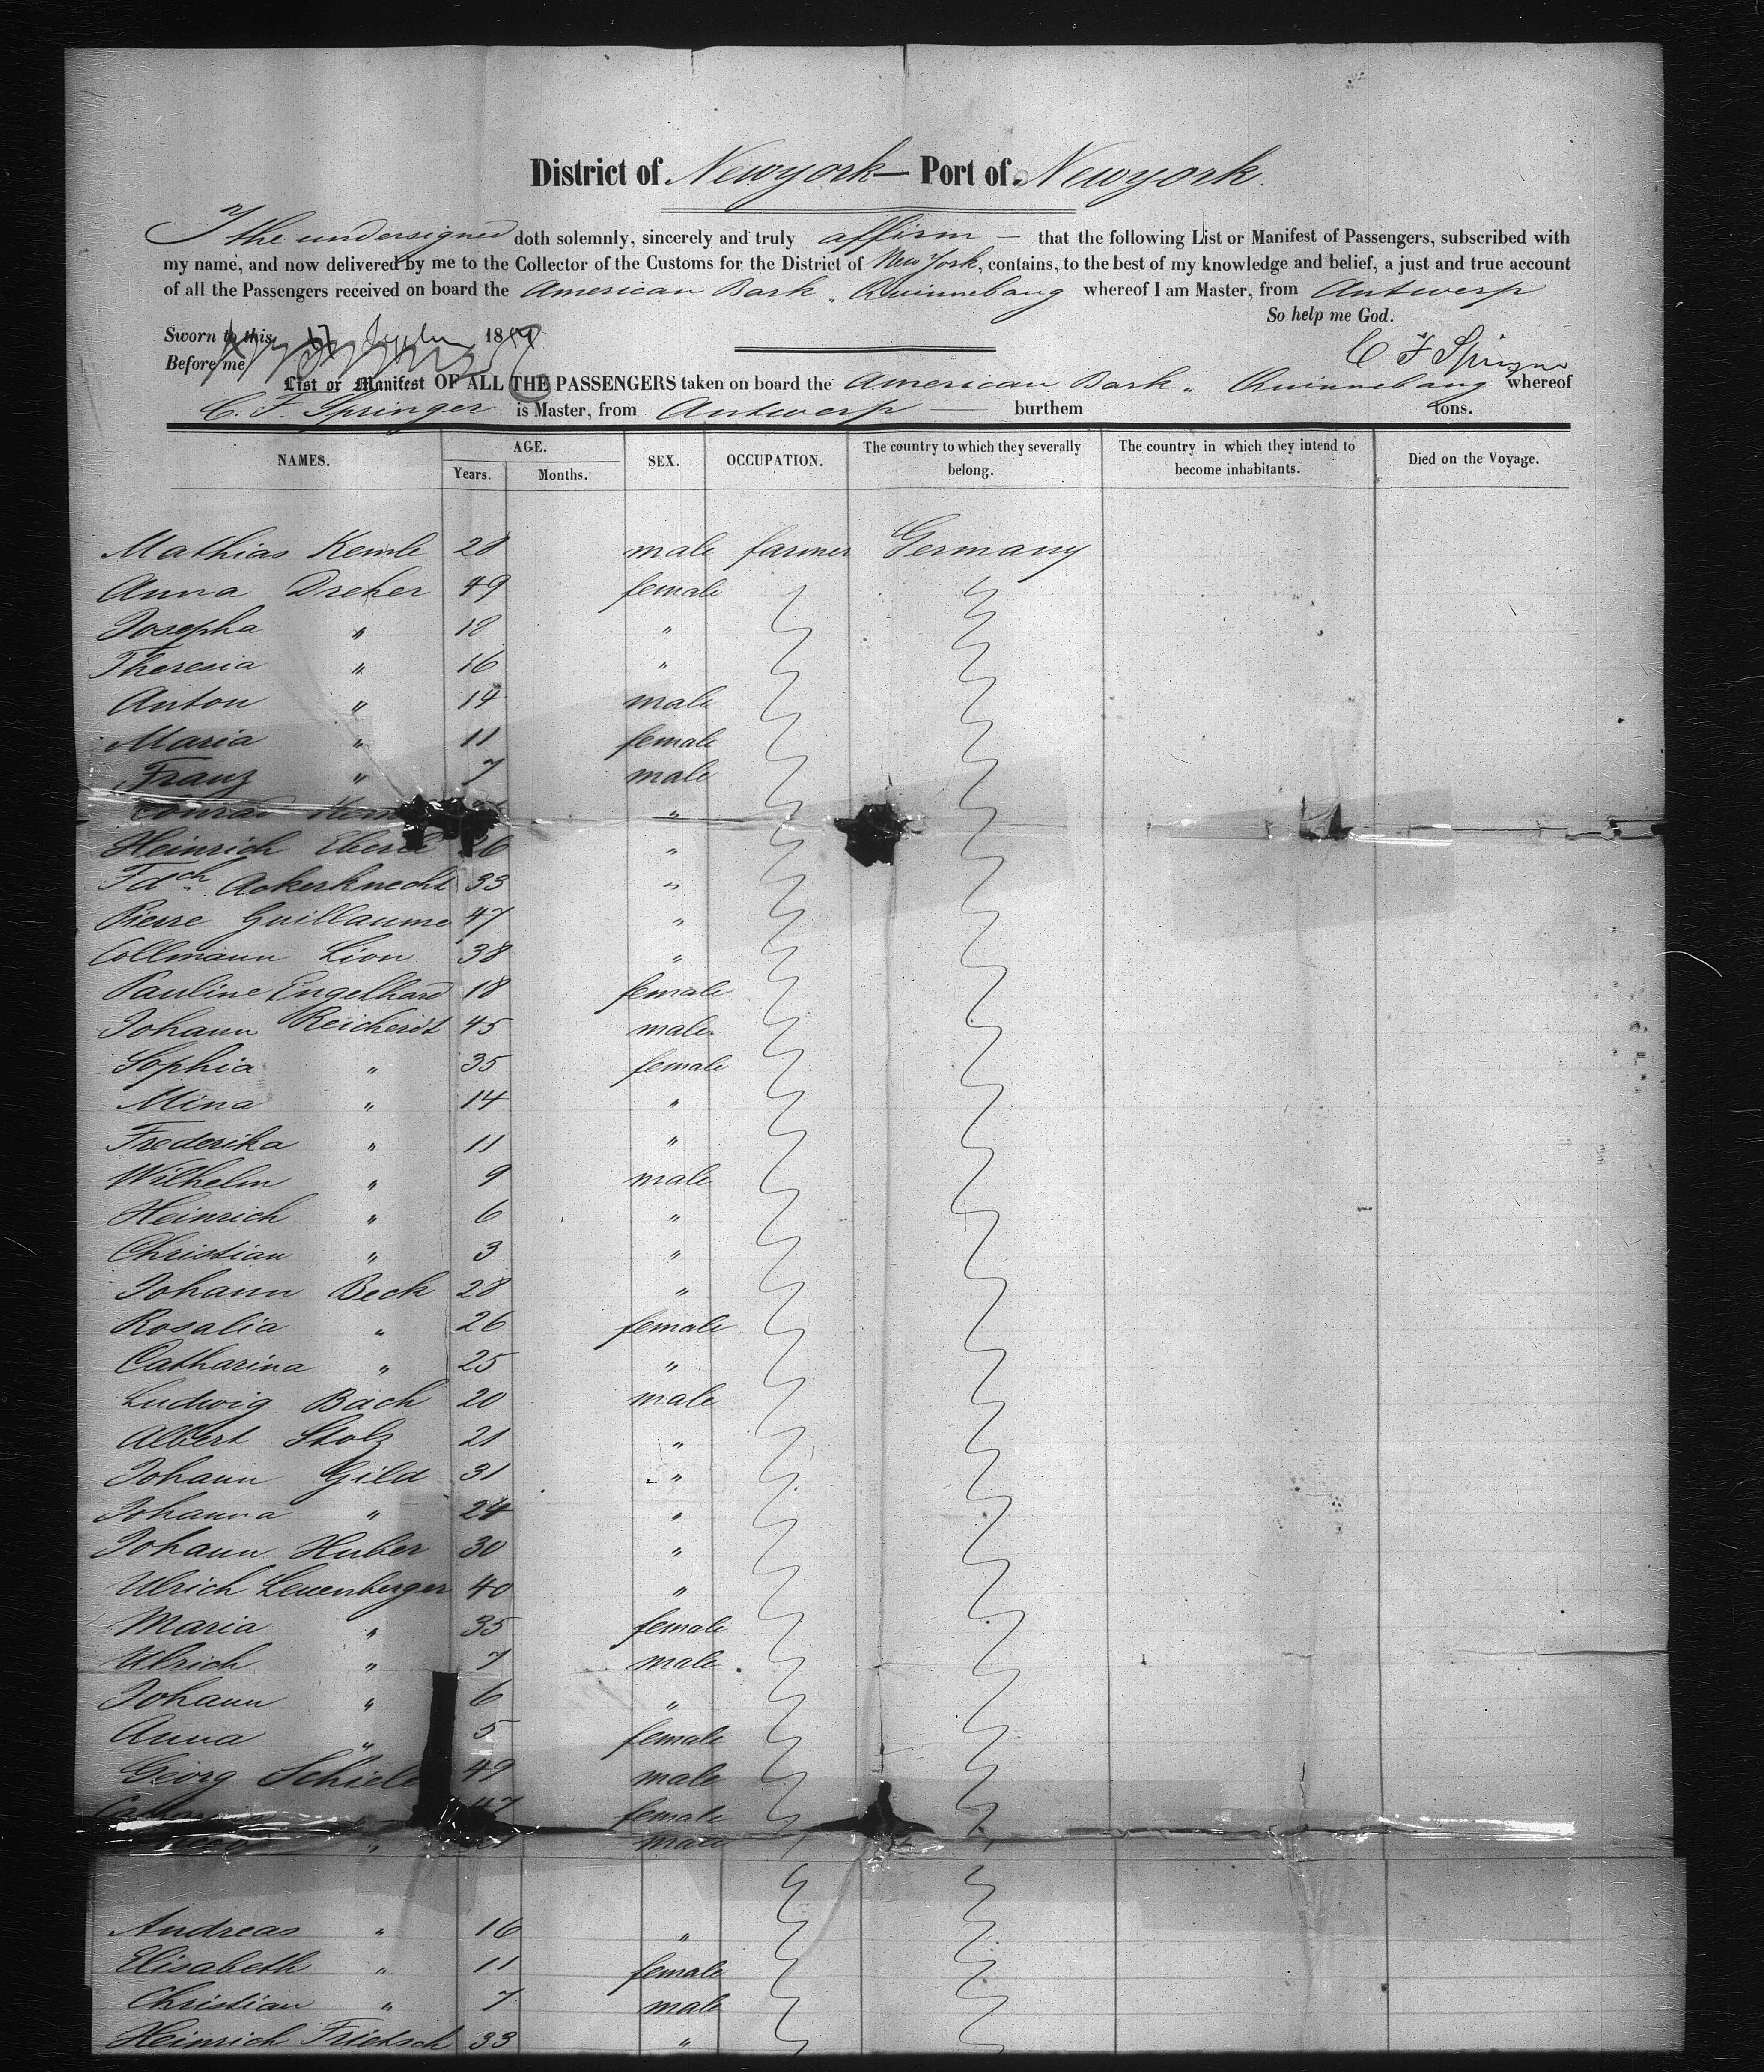 District of Newyork — Port of Newyork.
I the undersigned doth solemnly, sincerely and truly affirm — that the following List or Manifest of Passengers, subscribed with
my name, and now delivered by me to the Collector of the Customs for the District of New York, contains, to the best of my knowledge and belief, a just and true account
of all the Passengers received on board the American Bark „ Quinnebang whereof I am Master, from Antwerp
So help me God.
Sworn to this 17 18
Before me
C F Springer
List or Manifest OF ALL THE PASSENGERS taken on board the American Bark „ Quinnebang whereof
C. F. Springer is Master, from Antwerp — burthem tons.
NAMES. AGE. Years. Months. SEX. OCCUPATION. The country to which they severally belong. The country in which they intend to become inhabitants. Died on the Voyage.
Mathias Kemle 28 male farmer Germany
Anna Dreher 49 female
Josepha " 18 "
Theresia " 16 "
Anton " 14 male
Maria " 11 female
Franz " 7 male
Conrad "
Heinrich Eberle 26 "
Fdch. Ackerknecht 33 "
Pierre Guillaume 47 "
Collmann Lion 38 "
Pauline Engelhard 18 female
Johann Reicherdt 45 male
Sophia " 35 female
Mina " 14 "
Frederika " 11 "
Wilhelm " 9 male
Heinrich " 6 "
Christian " 3 "
Johann Beck 28 "
Rosalia " 26 female
Catharina " 25 "
Ludwig Bach 20 male
Albert Stolz 21 "
Johann Gild 31 "
Johanna " 24 "
Johann Huber 30 "
Ulrich Leuenberger 40 "
Maria " 35 female
Ulrich " 7 male
Johann " 6 "
Anna " 5 female
Georg Schiele 49 male
47 female
" male
Andreas " 16 "
Elisabeth " 11 female
Christian " 7 male
Heinrich Frietsch 33 "